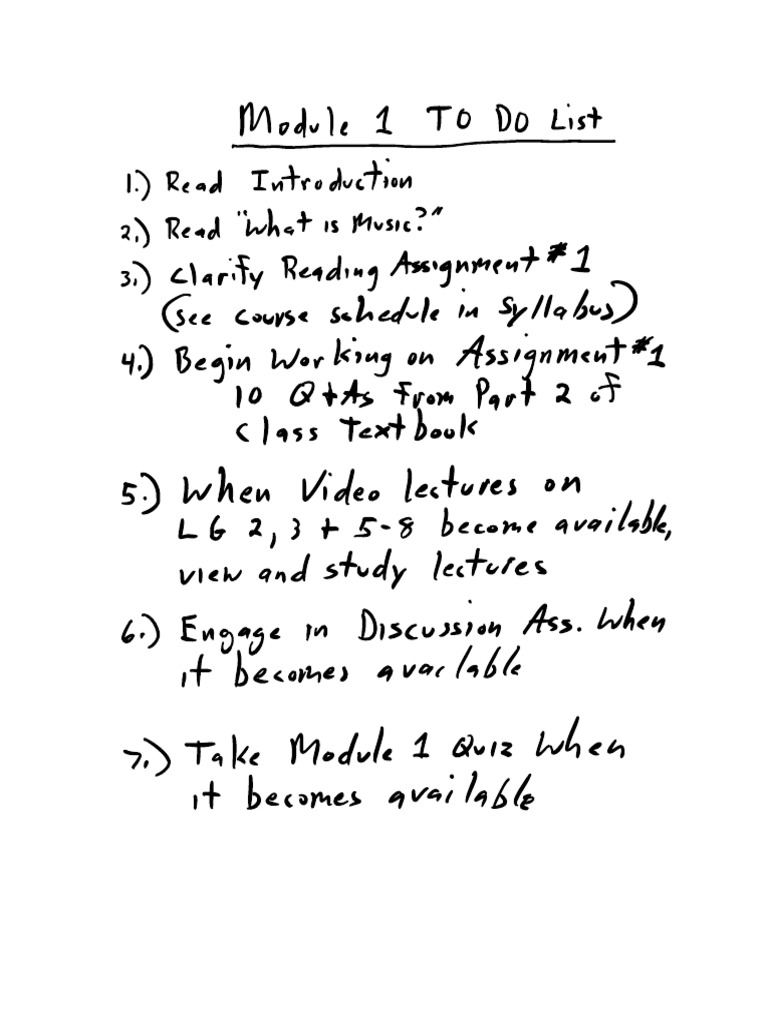 Module 1 TO DO List
1.) Read Introduction
2.) Read "What is Music?"
3.) Clarify Reading Assignment #1
(see course schedule in syllabus)
4.) Begin Working on Assignment #1
10 Q+As from Part 2 of
Class Textbook
5.) When Video lectures on
LG 2, 3 + 5-8 become available,
view and study lectures
6.) Engage in Discussion Ass. when
it becomes available
7.) Take Module 1 Quiz when
it becomes available